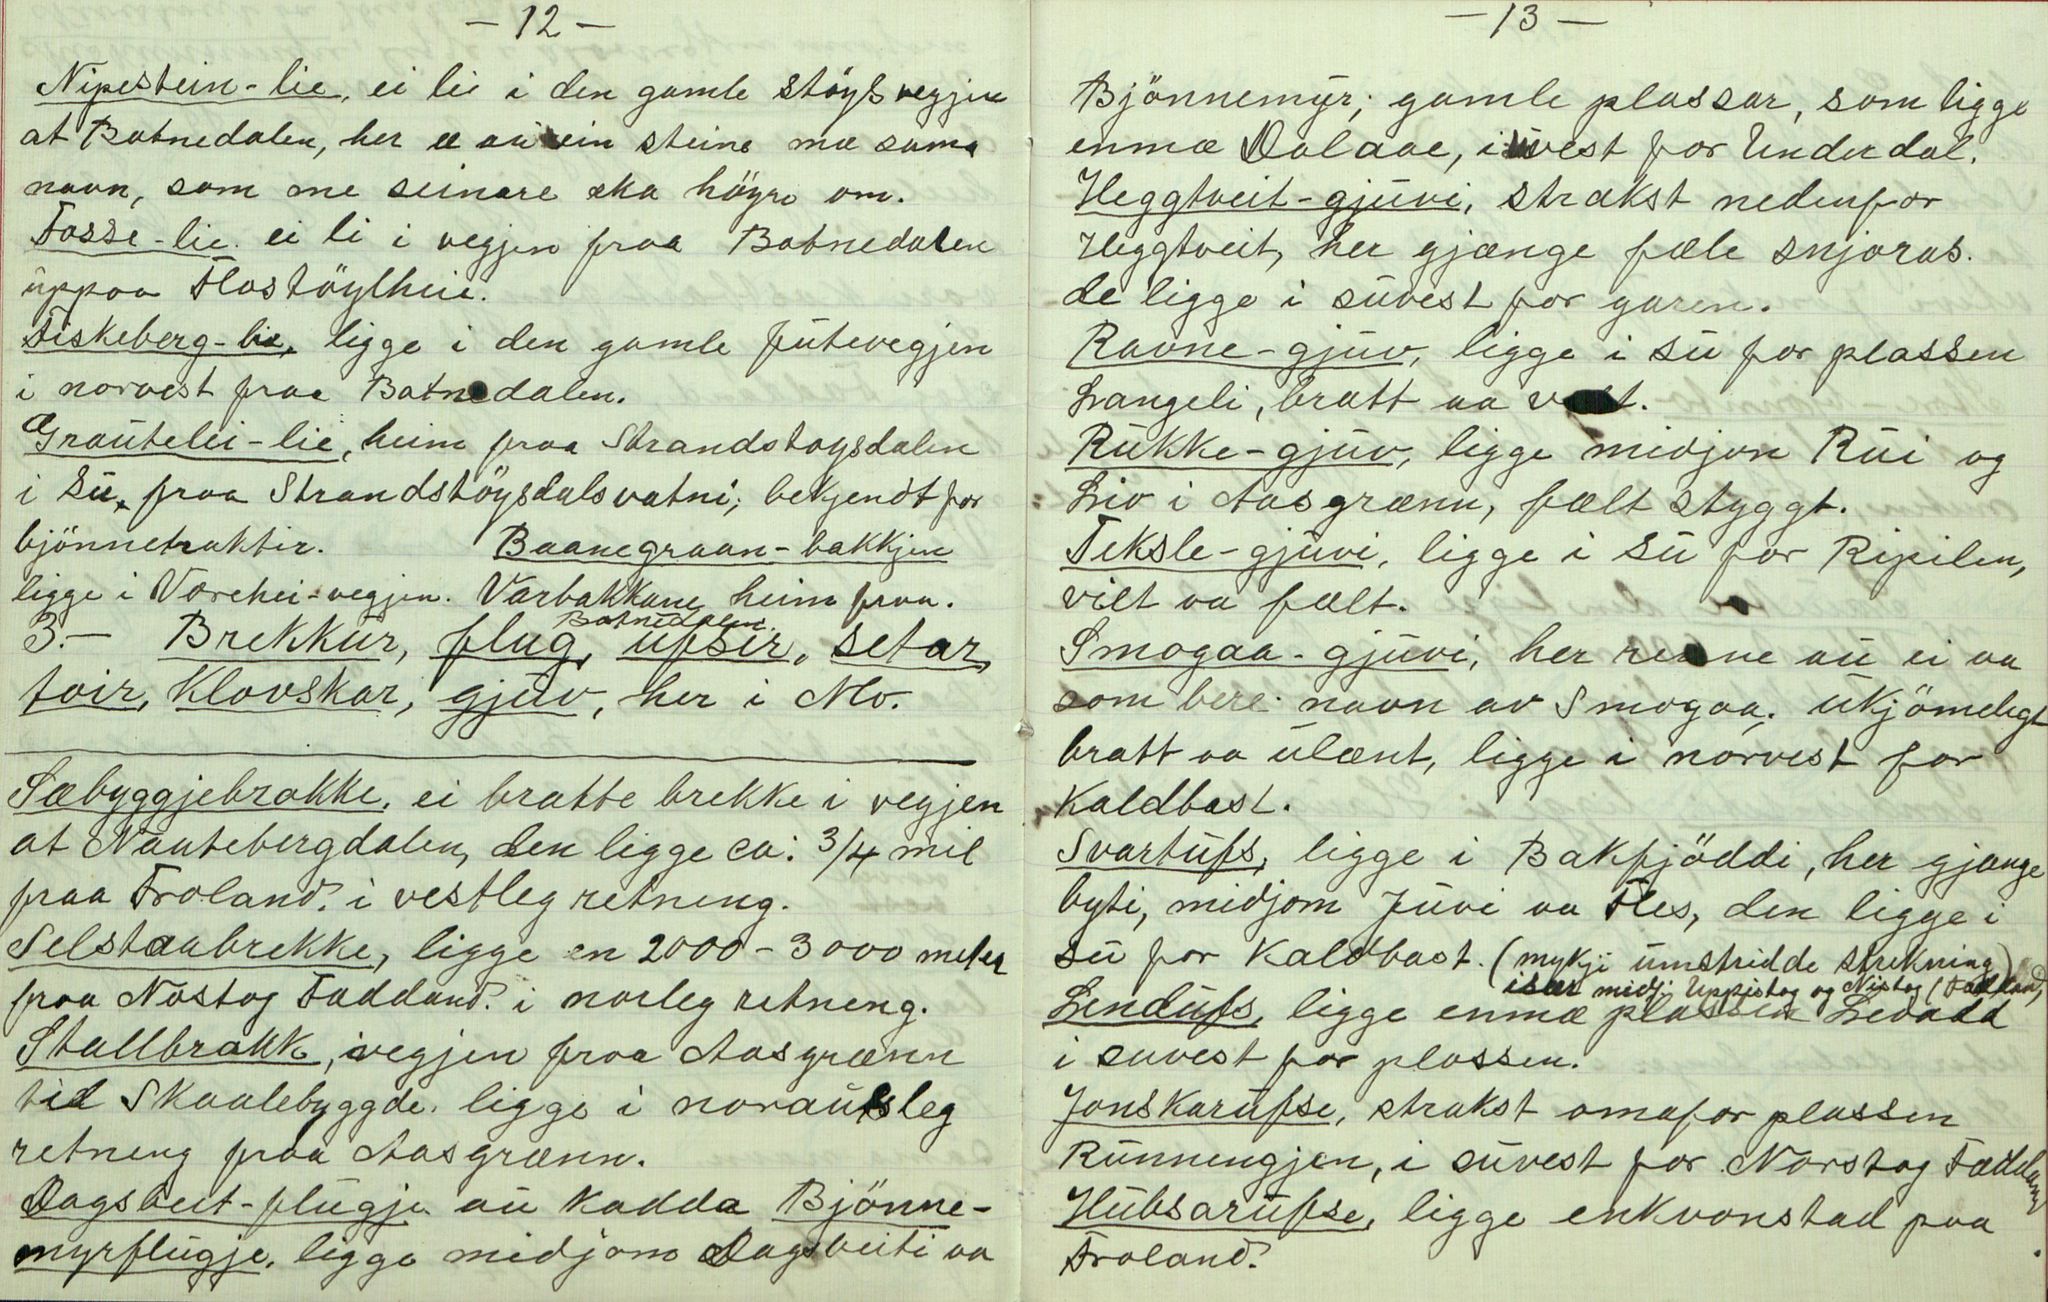 - 12 -
Nipestein-lie, ei lie i den gamle støyls vegjen
at Botnedalen, her æ au ein steine mæ sama
navn, som me seinare ska höyre om.
Fosse-lie. ei li i vegjen fraa Botnedalen
uppaa Flostöylheii.
Fiskeberg-lie, ligge i den gamle Jutevegjen
i norvest fraa Botnedalen.
Grautelii-lie, heim fraa Strandstoysdalen
i Su, fraa Strandstöysdalsvatni; bekjendt for
bjönnetraktir. Baanegraan-bakkjen
ligge i Vorehei-vegjen. Varbakkane heim fraa.
Botnedalen.
3.- Brekkur, flug, ufsir, setar,
toir, Klovskar, gjuv, her i Mo.
Sæbyggjebrokke, ei bratte brekke i vegjen
at Nautebergdalen, den ligge ca: 3/4 mil
fraa Froland. i vestleg retning.
Selstaabrekke, ligge en 2000-3000 meter
fraa Nostog Faddand. i norleg retneng.
Stallbrakk, ivegjen fraa Aasgrænn
tid Skaalebyggde. ligge i norausleg
retneng fraa Aasgrænn.
Dagsveit-flugje au kadda Bjönne-
myrflugje, ligge midjom Dagsveiti aa
- 13 -
Bjönnemyr; gamle plassar, som ligge
enmæ Dalaae, i uvest for Underdal.
Heggtveit-gjuvi, strakst nedenfor
Heggtveit, her gjænge fæle snjoras.
de ligge i suvest for garen.
Ravne-gjuv, ligge i su for plassen
Langeli, bratt aa vott.
Rukke-gjuv, ligge midjom Rui og
Liv i Aasgrænn, fælt styggt.
Teksle-gjuvi, ligge i su for Ripilen,
vilt aa fælt.
Smogaa-gjuvi, her renne au ei aa
som bere navn av Smogaa. ukjömelegt
bratt aa ulænt, ligge i norvest for
Kaldbast.
Svartufs, ligge i Bakfjöddi, her gjænge
byti, midjom Juvi aa Fles, den ligge i
su for Kaldbast. (mykji umstridde strekning)
især midj. Uppistog og Nistog (Fadland)
Lendufs, ligge enmæ plassen Levadd
i suvest for plassen.
Jonskarufse, strakst omafor plassen
Runnengjen, i suvest for Norstog Fæddand
Hubsarufse, ligge enkvonstad paa
Froland.